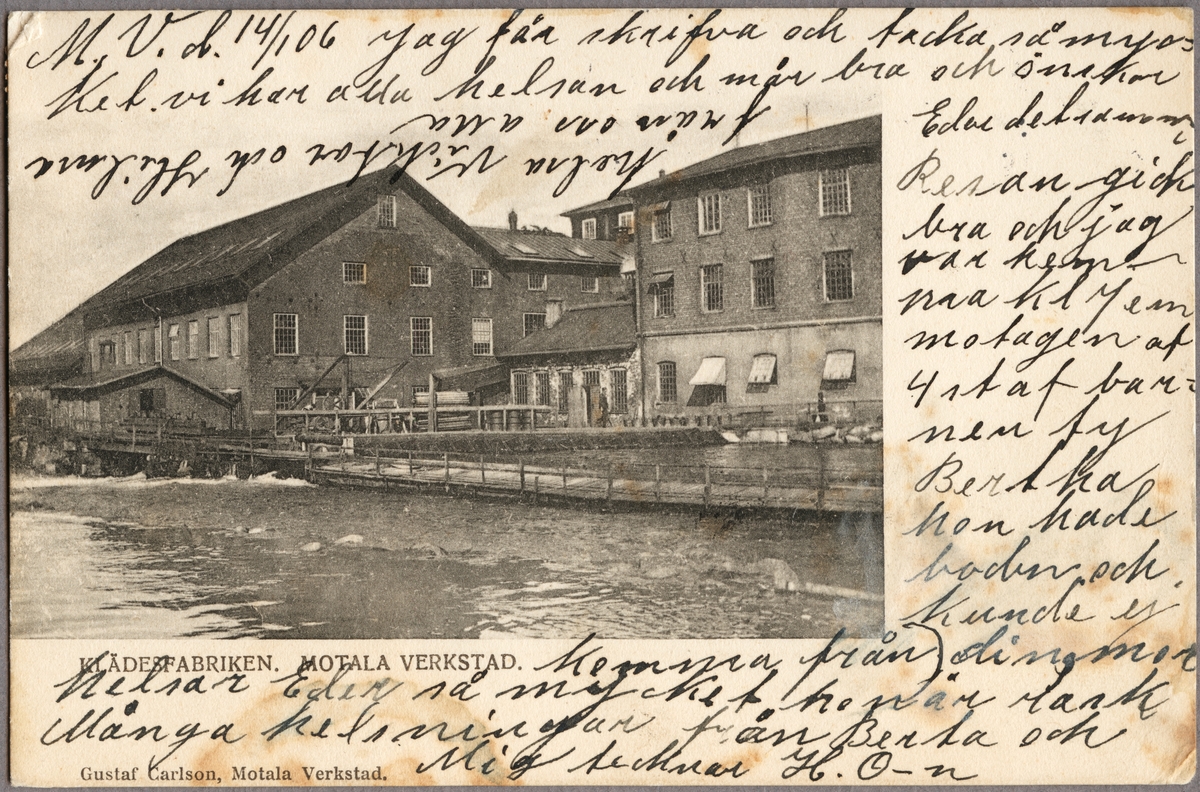 M. V. d. 14/1 06 Jag får skrifva och tacka så myc=
ket. vi har alla helsan och mår bra och önskar
Eder detsamm
Resan gick
bra och jag
var hem-
maa kl 7 em
motagen af
4 st af bar=
nen ty
Bertha
hon hade
boden och
kunde ej
komma från) din mor
helsar Eder så mycket hon är rask
Många helsningar från Berta och
Mig tecknar H. O-n
helsa Viktor och Hilma
från oss alla
KLÄDESFABRIKEN. MOTALA VERKSTAD.
Gustaf Carlson, Motala Verkstad.